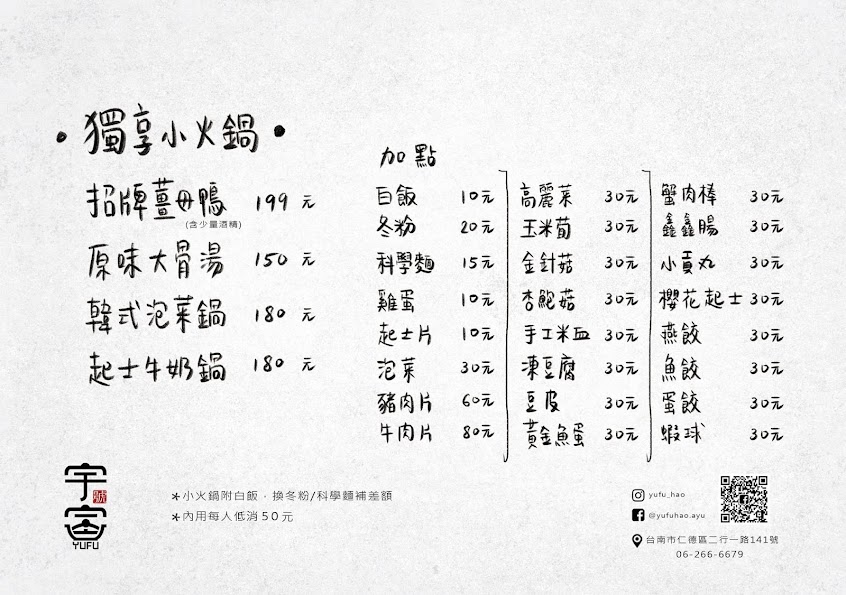 • 獨享小火鍋 •
招牌薑母鴨 199 元
(含少量酒精)
原味大骨湯 150 元
韓式泡菜鍋 180 元
起士牛奶鍋 180 元
加點
白飯 10元
冬粉 20元
科學麵 15元
雞蛋 10元
起士片 10元
泡菜 30元
豬肉片 60元
牛肉片 80元
高麗菜 30元
玉米筍 30元
金針菇 30元
杏鮑菇 30元
手工米血 30元
凍豆腐 30元
豆皮 30元
黃金魚蛋 30元
蟹肉棒 30元
鑫鑫腸 30元
小貢丸 30元
櫻花起士 30元
燕餃 30元
魚餃 30元
蛋餃 30元
蝦球 30元
宇富
號
YUFU
*小火鍋附白飯，換冬粉/科學麵補差額
*內用每人低消50元
yufu_hao
@yufuhao.ayu
台南市仁德區二行一路141號
06-266-6679